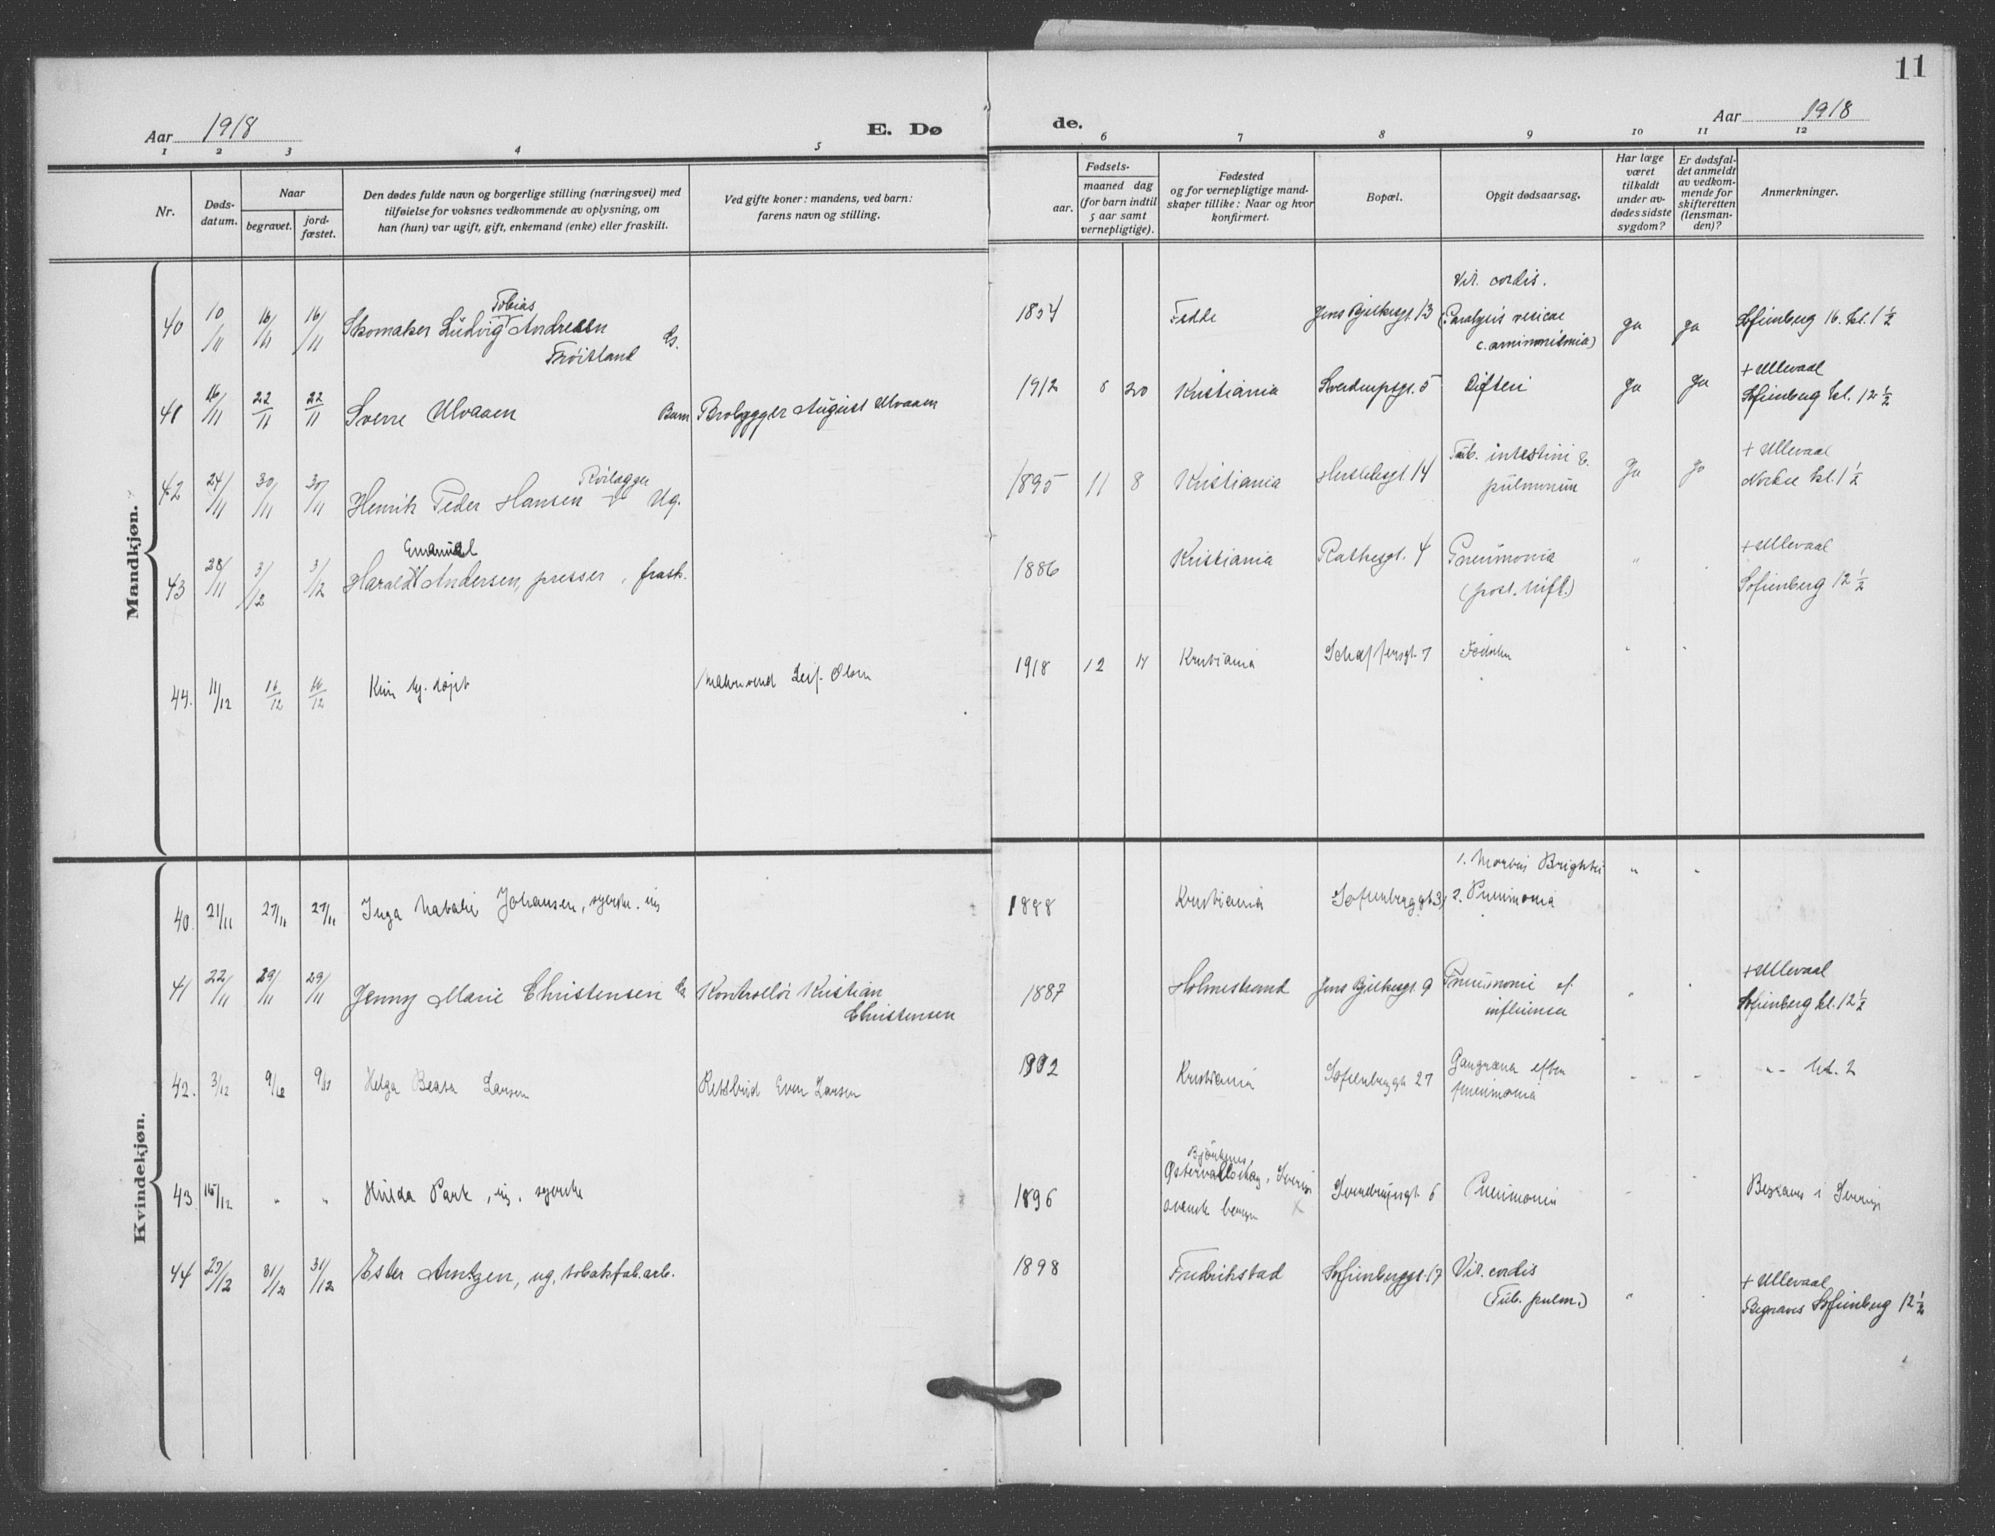 11
Aar 1918
E. Dø
de.
Aar 1918
1 2 3 4 5 6 7 8 9 10 11 12
Nr.
Døds-
datum.
Naar
begravet.
jord-
fæstet.
Den dødes fulde navn og borgerlige stilling (næringsvei) med
tilføielse for voksnes vedkommende av oplysning, om
han (hun) var ugift, gift, enkemand (enke) eller fraskilt.
Ved gifte koner: mandens, ved barn:
farens navn og stilling.
Fødsels-
aar.
maaned dag
(for barn indtil
5 aar samt
vernepligtige).
Fødested
og for vernepligtige mand-
skaper tillike: Naar og hvor
konfirmert.
Bopæl.
Opgit dødsaarsag.
Har læge
været
tilkaldt
under av-
dødes sidste
sygdom?
Er dødsfal-
det anmeldt
av vedkom-
mende for
skifteretten
(lensman-
den)?
Anmerkninger.
Mandkjøn.
Tobias
Vit. cordis.
40 10/11 16/11 16/11 Skomaker Ludvig Andresen 1854 Jens Bjelkesgt. 13 (Paralysis vesicae ja ja Sofienberg 16. kl. 1 1/2
Frøisland
+ Ullevaal
41 16/11 22/11 22/11 Sverre Ulvaaen Barn Brolægger August Ulvaaen 1912 8 20 Kristiania Sverdrupsgt. 5 Difteri ja ja Sofienberg kl. 12 1/2
Tub. intestini &
+ Ullevaal
42 24/11 30/11 30/11 Henrik Peder Hansen Ug. 1895 11 8 Kristiania 14 pulmonum ja ja Nordre kl. 1 1/2
Emanuel
+ Ullevaal
43 28/11 3/12 3/12 Harald Andersen, presser, frask. 1886 Kristiania Rathkesgt. 4 Pneumonia " Sofienberg 12 1/2
(post. infl.)
44. 11/12 16/12 16/12 Olsen 1918 12 Kristiania 7 "
Kvindekjøn.
1. Morbus Brightii " "
40. 21/11 27/11 27/11 Inga Natalie Johansen, syerske. ug 1888 Kristiania 2. Pneumonia
+ Ullevaal
41 22/11 29/11 29/11 Jenny Marie Christensen Kontrollør Kristian 1887 Holmestrand Jens Bjelkesgt. 9 Pneumonie ef. Sofienberg kl. 12 1/2
Christensen
influensa
42. 3/12 Helga Larsen Even Larsen Kristiania Sofienberggt 27 Gangræna efter
pneumonia
43 16/12 " " Hulda Park, ug. syerske 1896 Sverdrupsgt. 6 Pneumonia Begraves i Sverige
44 31/12 31/12 Ester Arntzen, ug. tobakfab.arb. 1898 Fredrikstad Sofienberggt. 17 Vit. cordis
(Tub. pulm.) " + Ullevaal
Begraves Sofienberg 12 1/2